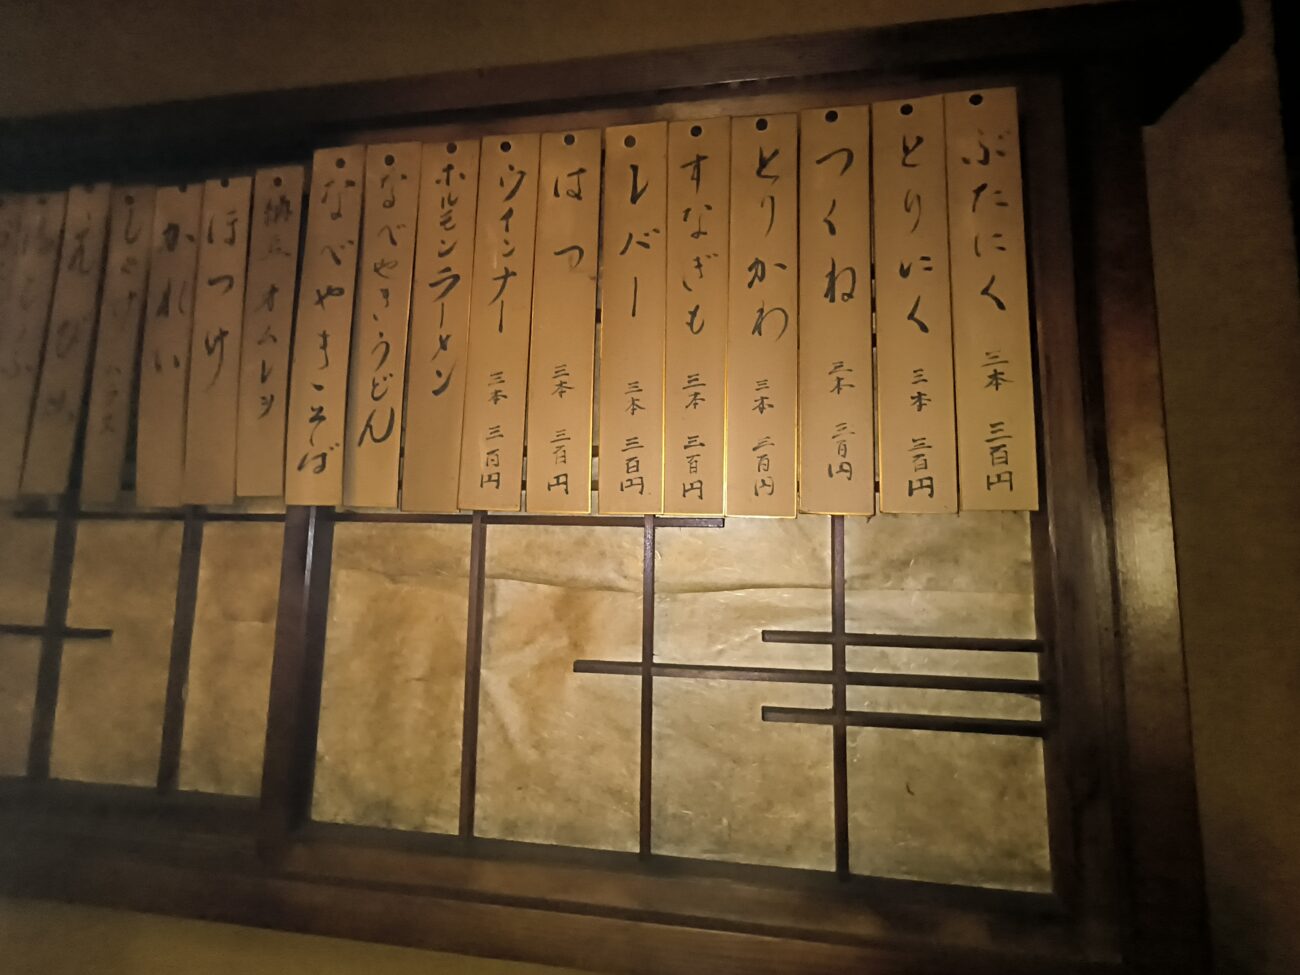 ぶたにく 三本 三百円
とりにく 三本 三百円
つくね 三本 三百円
とりかわ 三本 三百円
すなぎも 三本 三百円
レバー 三本 三百円
はつ 三本 三百円
ウインナー 三本 三百円
ホルモンラーメン
なべやきうどん
なべやきそば
納豆オムレツ
ほっけ
かれい